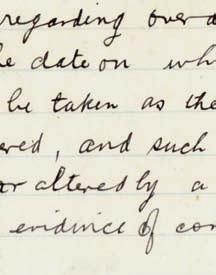 regarding over d
he date on wh
be taken as the
ered, and such
or altered by a
evidence of con